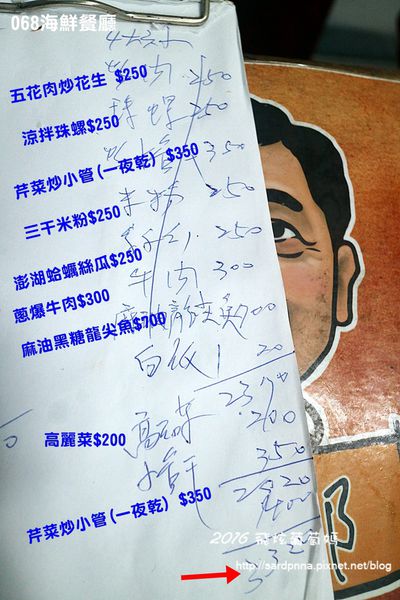 068海鮮餐廳
五花肉炒花生 $250
肉 250
涼拌珠螺$250
珠螺 250
芹菜炒小管(一夜乾) $350
小管 350
三干米粉$250
米粉 250
澎湖蛤蠣絲瓜$250
250
蔥爆牛肉$300
牛肉 300
麻油黑糖龍尖魚$700
白飯 1 20
2370
高麗菜$200
高麗菜 200
350
2920
芹菜炒小管(一夜乾) $350
400
3320
2016 飛炫葡萄媽
http://sardpnna.pixnet.net/blog